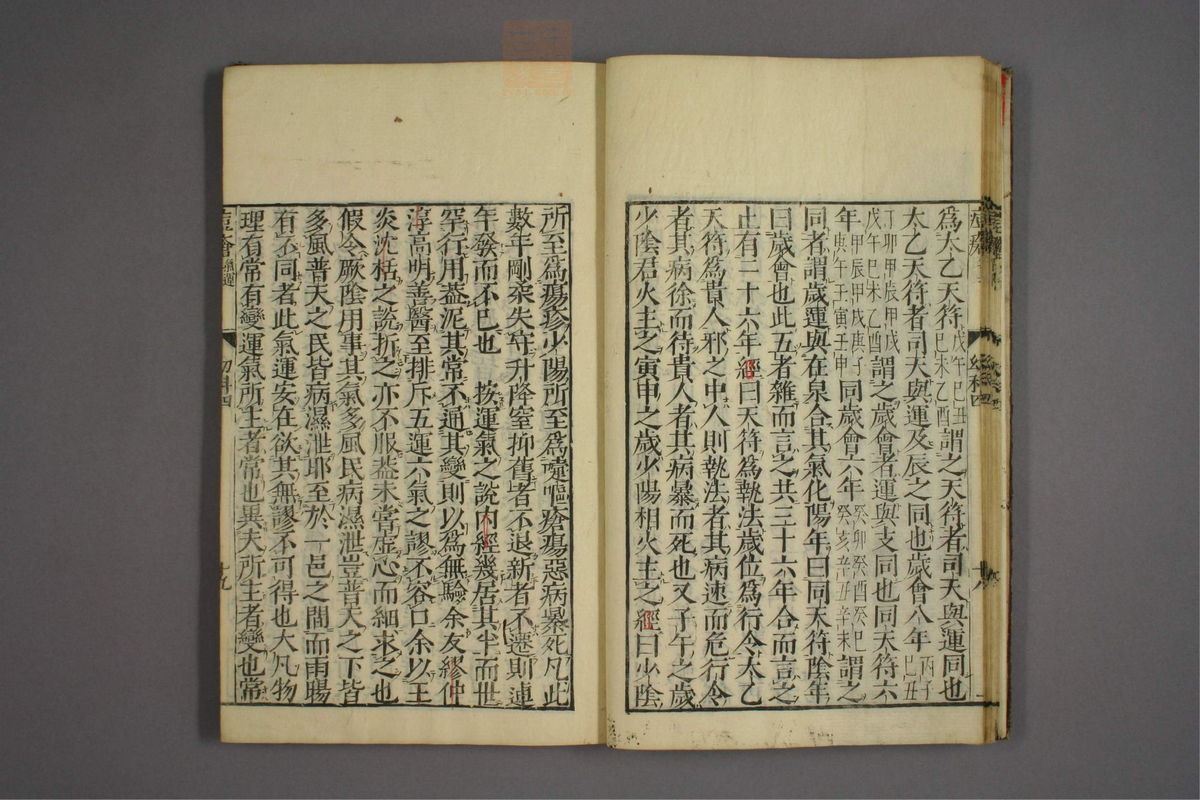 爲太乙天符戊午己丑己未乙酉謂之天符者司天與運同也
太乙天符者司天與運及辰之同也歲會八年丙子己丑
丁卯甲辰甲戌戊午己未乙酉謂之歲會者運與支同也同天符六
年甲辰甲戌庚子庚午壬寅壬申同歲會六年癸卯癸酉癸巳癸亥辛丑辛未謂之
同者謂歲運與在泉合其氣化陽年曰同天符陰年
曰歲會也此五者雜而言之共三十六年合而言之
止有二十六年經曰天符爲執法歲位爲行令太乙
天符爲貴人邪之中人則執法者其病速而危行令
者其病徐而待貴人者其病暴而死也又子午之歲
少陰君火主之寅申之歲少陽相火主之經曰少陰
所至爲瘍疹少陽所至爲嚏嘔瘡瘍惡病暴死凡此
數年剛柔失守升降窒抑舊者不退新者不遷則連
年發而不已也 按運氣之說内經幾居其半而世
罕行用葢泥其常不通其變則以爲無驗余友繆仲
淳高明善醫至排斥五運六氣之謬不容口余以王
炎沈括之說折之亦不服葢未嘗虚心而細求之也
假令厥陰用事其氣多風民病濕泄豈普天之下皆
多風普天之民皆病濕泄耶至於一邑之間而雨暘
有不同者此氣運安在欲其無謬不可得也大凡物
理有常有變運氣所主者常也異夫所主者變也常
幼科四
十八
幼科四
十九